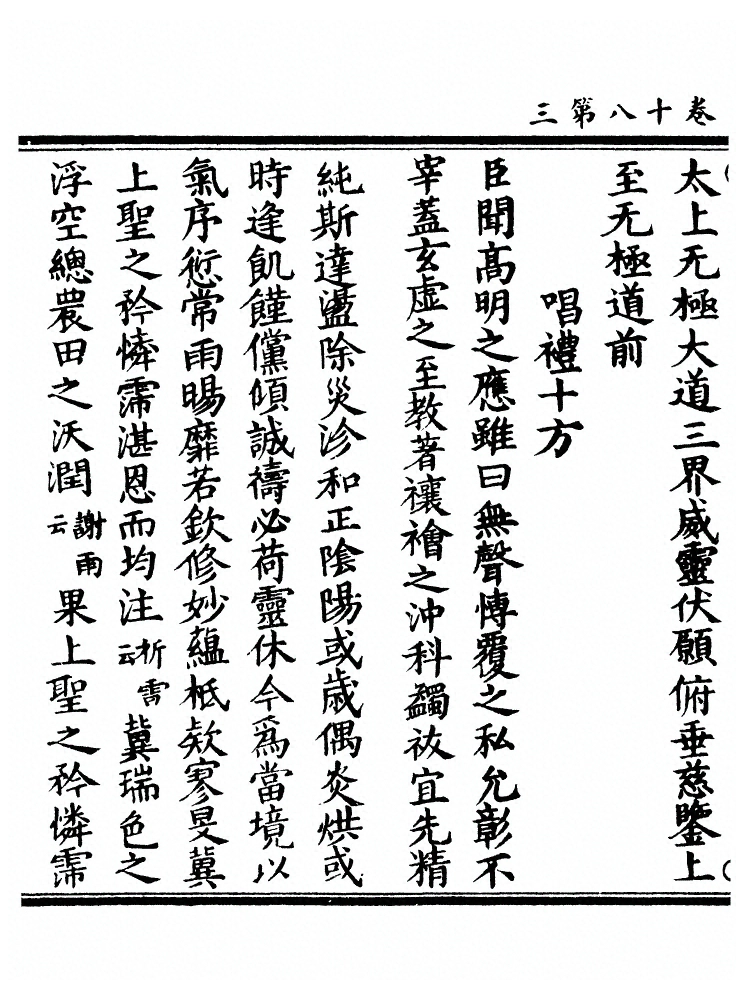 卷十八第三
太上无極大道三界威靈伏願俯垂慈鑒上
至无極道前
唱禮十方
臣聞高明之應雖曰無聲慱覆之私允彰不
宰蓋玄虛之至教著禳襘之沖科蠲祓宜先精
純斯達盪除災沴和正陰陽或歲偶炎烘或
時逢飢饉儻傾誠禱必荷靈休今爲當境以
氣序愆常雨暘靡若欽修妙蘊柢欵寥旻冀
上聖之矜憐霈湛恩而均注祈雪云冀瑞色之
浮空總農田之沃潤謝雨云果上聖之矜憐霈